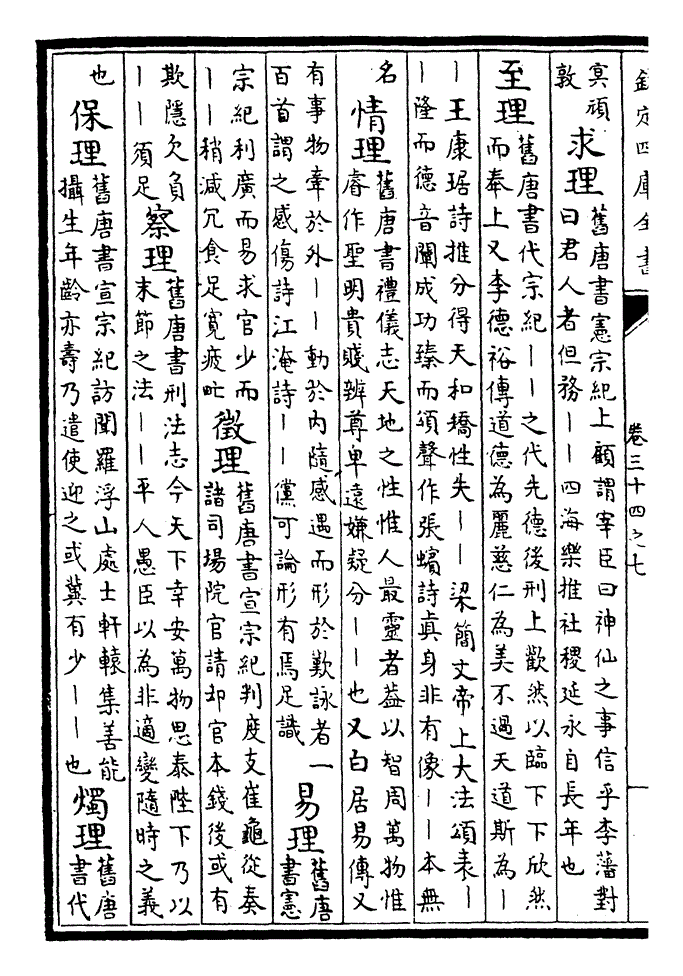 欽定四庫全書
卷三十四之七
冥頑
敦
求理
舊唐書憲宗紀上顧謂宰臣曰神仙之事信乎李藩對
曰君人者但務丨丨四海樂推社稷延永自長年也
至理
舊唐書代宗紀丨丨之代先德後刑上歡然以臨下下欣然
而奉上又李德裕傳道德為麗慈仁為美不過天道斯為丨
丨王康琚詩推分得天和矯性失丨丨梁簡文帝上大法頌表丨
丨隆而德音闡成功臻而頌聲作張蠙詩真身非有像丨丨本無
名
情理
舊唐書禮儀志天地之性惟人最靈者蓋以智周萬物惟
睿作聖明貴賤辨尊卑遠嫌疑分丨丨也又白居易傳又
有事物牽於外丨丨動於內隨感遇而形於歎詠者一
百首謂之感傷詩江淹詩丨丨儻可論形有焉足識
易理
舊唐
書憲
宗紀利廣而易求官少而
丨丨稍減冗食足寬疲甿
徵理
舊唐書宣宗紀判度支崔龜從奏
諸司場院官請却官本錢後或有
欺隱欠負
丨丨須足
察理
舊唐書刑法志今天下幸安萬物思泰陛下乃以
末節之法丨丨平人愚臣以為非適變隨時之義
也
保理
舊唐書宣宗紀訪聞羅浮山處士軒轅集善能
攝生年齡亦壽乃遣使迎之或冀有少丨丨也
燭理
舊唐
書代